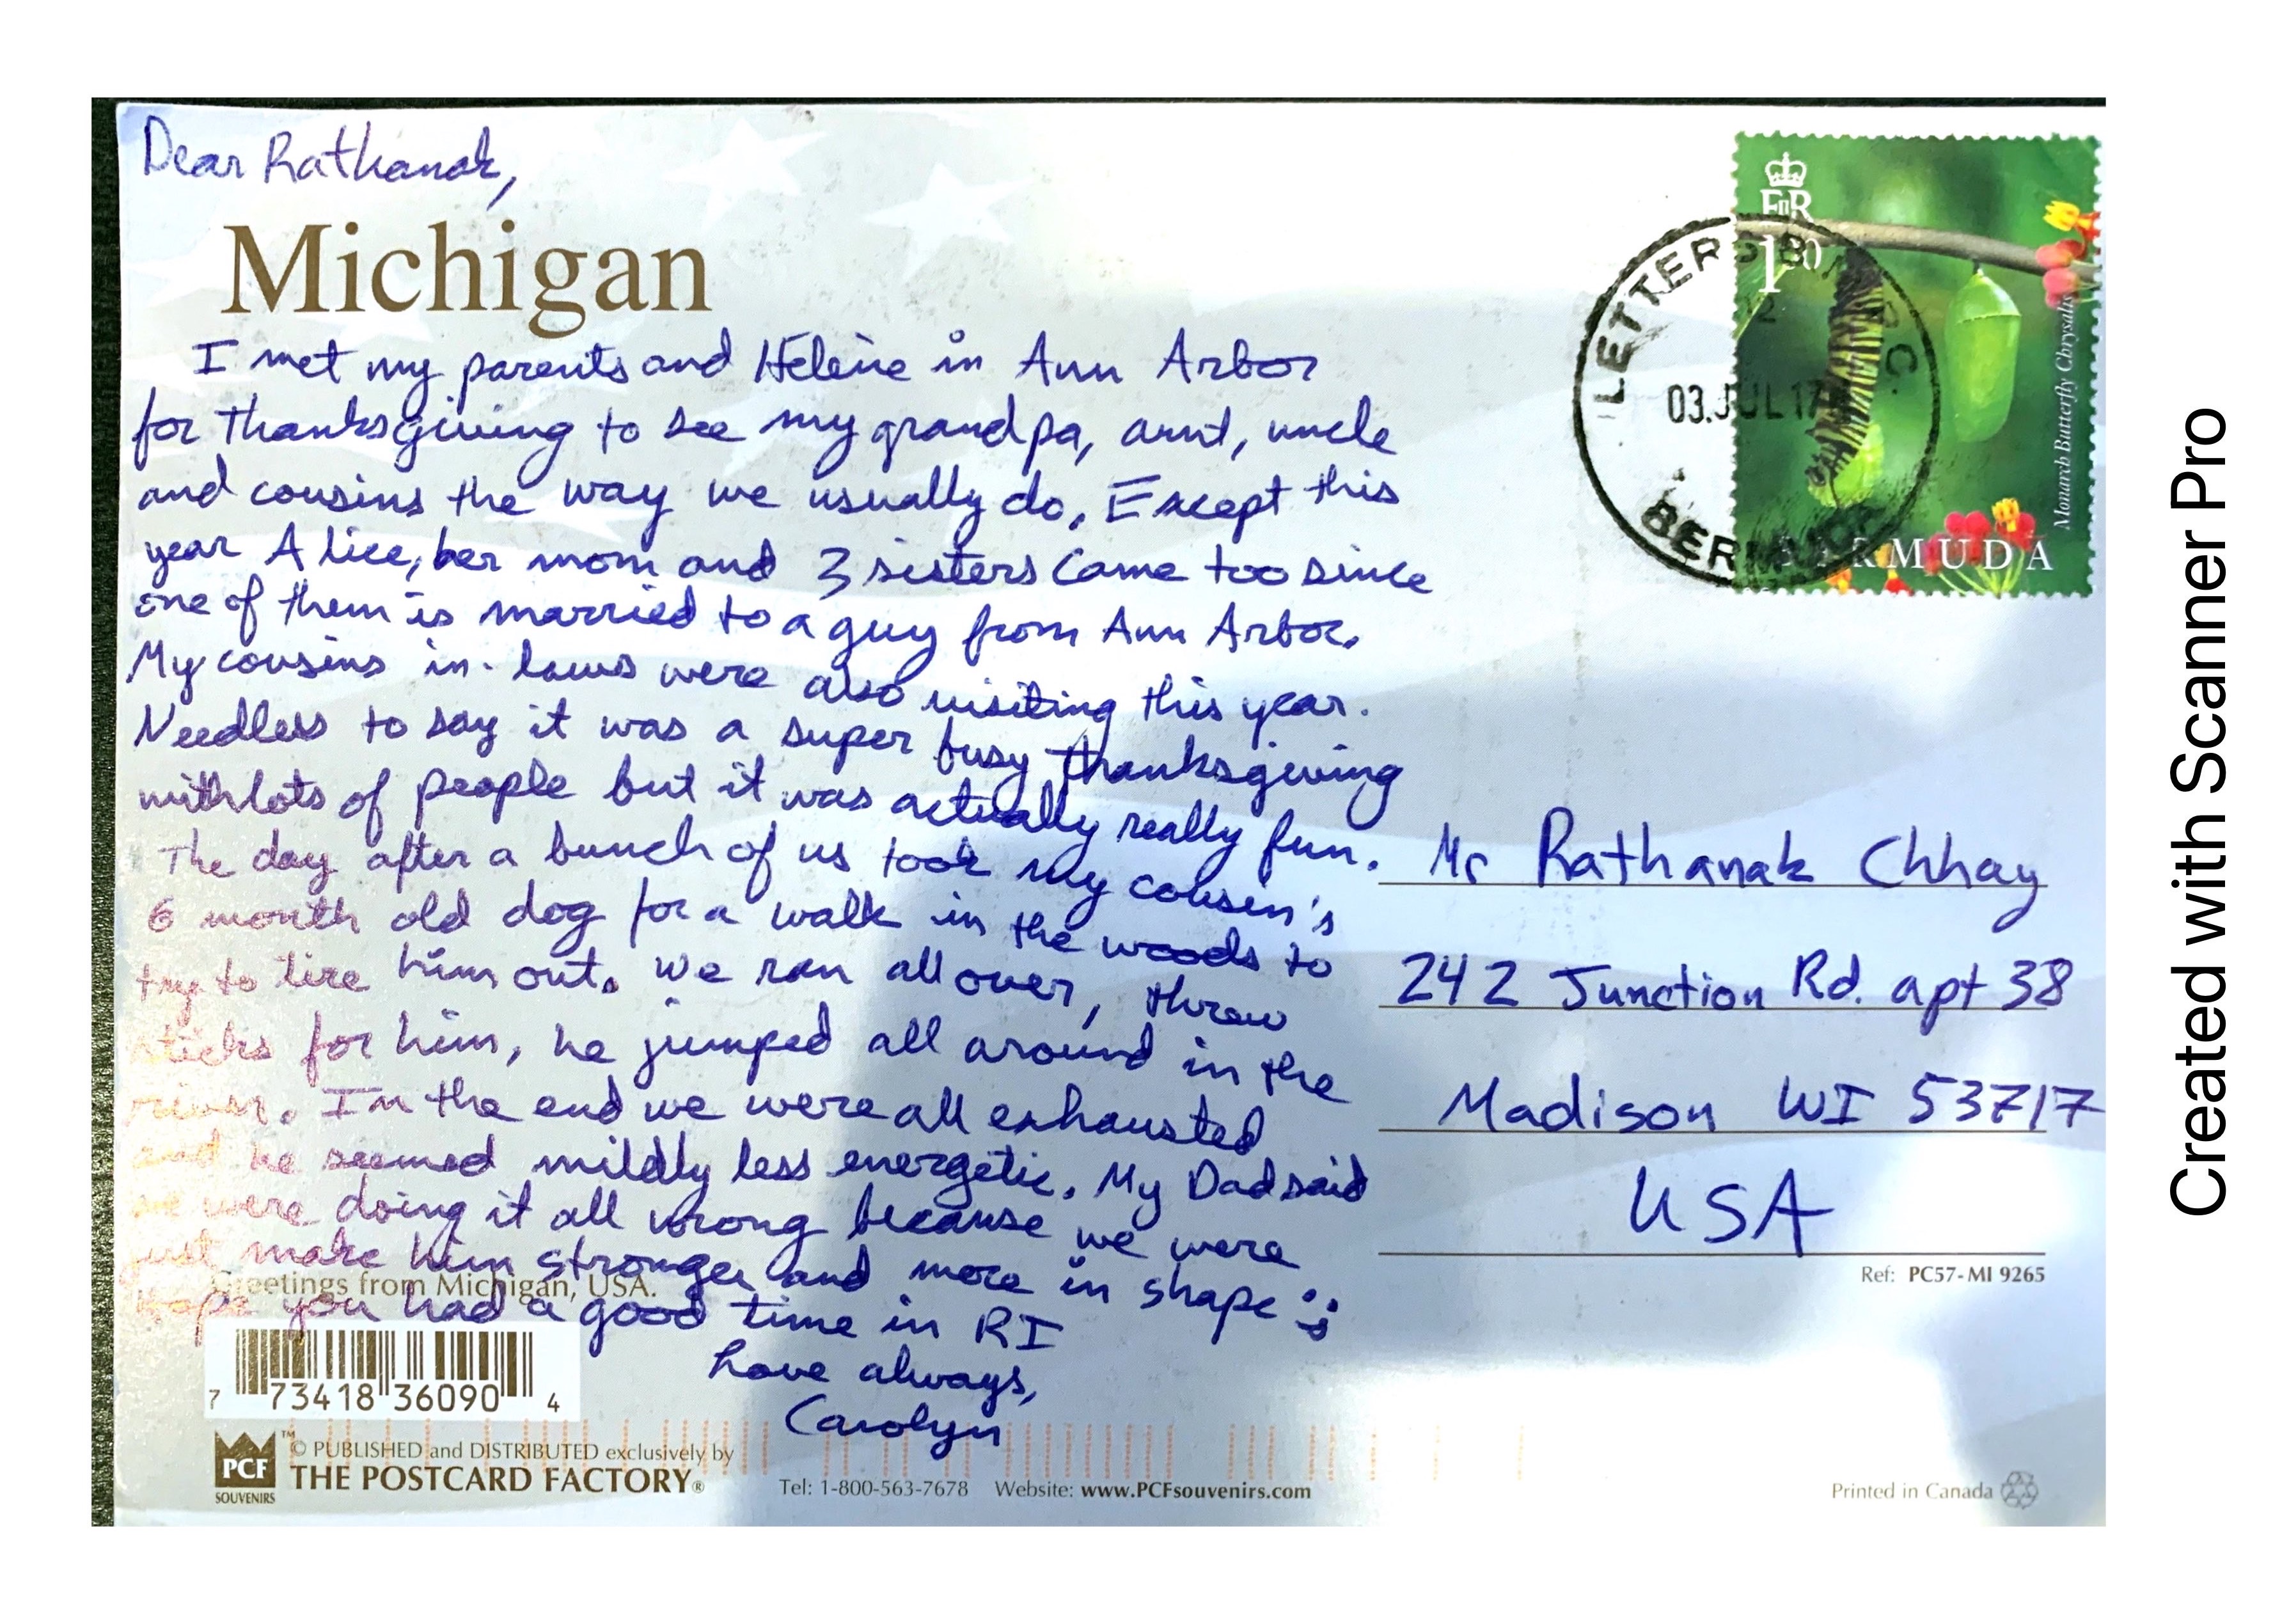 Dear Rathanak,
Michigan
I met my parents and Helene in Ann Arbor
for thanksgiving to see my grandpa, aunt, uncle
and cousins the way we usually do. Except this
year Alice, her mom and 3 sisters came too since
one of them is married to a guy from Ann Arbor.
My cousins in-laws were also visiting this year.
Needless to say it was a super busy thanksgiving
with lots of people but it was actually really fun.
The day after a bunch of us took my cousin's
6 month old dog for a walk in the woods to
try to tire him out. We ran all over, threw
sticks for him, he jumped all around in the
river. In the end we were all exhausted
and he seemed mildly less energetic. My Dad said
we were doing it all wrong because we were
just make him stronger and more in shape :)
Hope you had a good time in RI
Love always,
Carolyn
Greetings from Michigan, USA.
7 73418 36090 4
PCF
SOUVENIRS
™
© PUBLISHED and DISTRIBUTED exclusively by
THE POSTCARD FACTORY®
Tel: 1-800-563-7678 Website: www.PCFsouvenirs.com
Printed in Canada
EIIR
1.30
LETTERS
03.JUL17
BERMUDA
Monarch Butterfly Chrysalis
BERMUDA
Mr Rathanak Chhay
242 Junction Rd. apt 38
Madison WI 53717
USA
Ref: PC57-MI 9265
Created with Scanner Pro